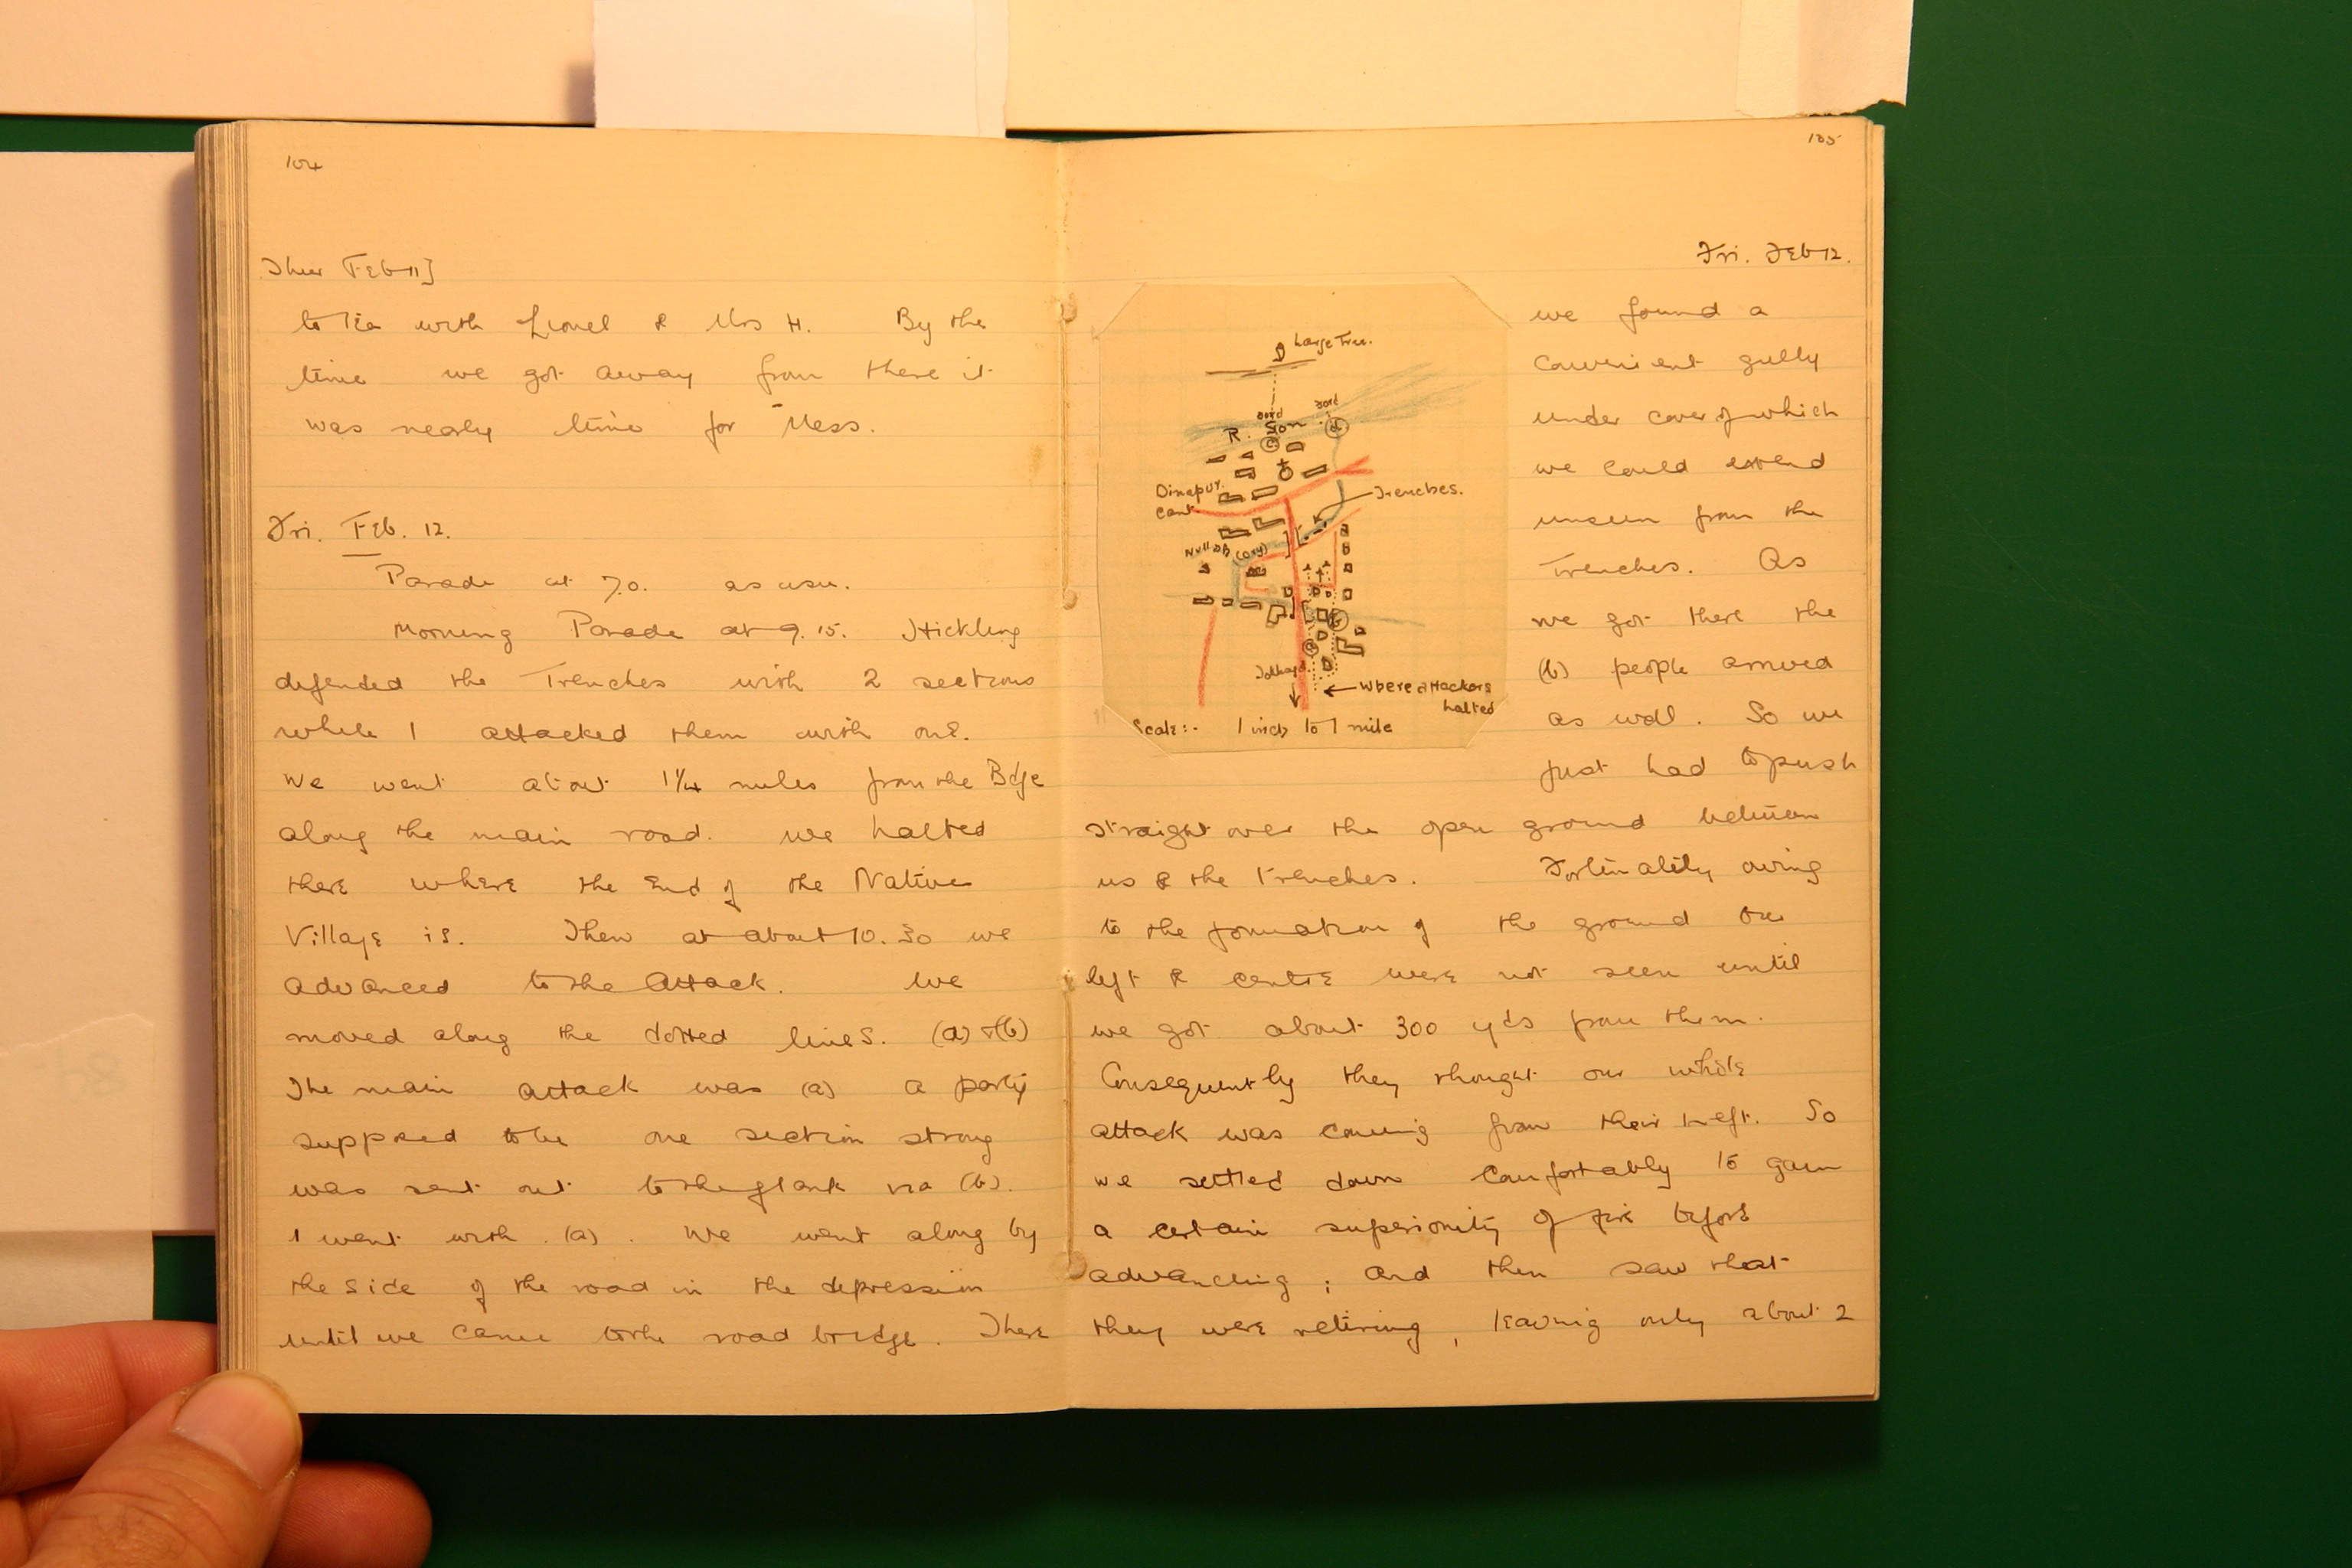 104
Thur Feb 11]
to Tea with Lionel & Mrs H. By the
time we got away from there it
was nearly time for Mess.
Fri. Feb. 12.
Parade at 7.0. as usu.
Morning Parade at 9.15. Hickling
defended the Trenches with 2 sections
while I attacked them with one.
We went about 1¼ miles from the Bdge
along the main road. We halted
there where the End of the Native
Village is. Then at about 10.30 we
advanced to the Attack. We
moved along the dotted lines. (a) & (b)
The main attack was (a) a party
supposed to be one section strong
was sent out to the flank via (b).
I went with (a). We went along by
the side of the road in the depression
until we came to the road bridge. There
105
Fri. Feb 12.
Large Tree.
Ford
Ford
R. Son.
Dinapur.
Cant.
Trenches.
Nullah (Dry)
Where attackers
halted
Scale:- 1 inch to 1 mile
we found a
convenient gully
under cover of which
we could extend
unseen from the
Trenches. As
we got there the
(b) people arrived
as well. So we
just had to push
straight over the open ground between
us & the Trenches. Fortunately owing
to the formation of the ground our
left & centre were not seen until
we got about 300 yds from them.
Consequently they thought our whole
attack was coming from their Left. So
we settled down comfortably to gain
a certain superiority of fire before
advancing; and then saw that
they were retiring, leaving only about 2